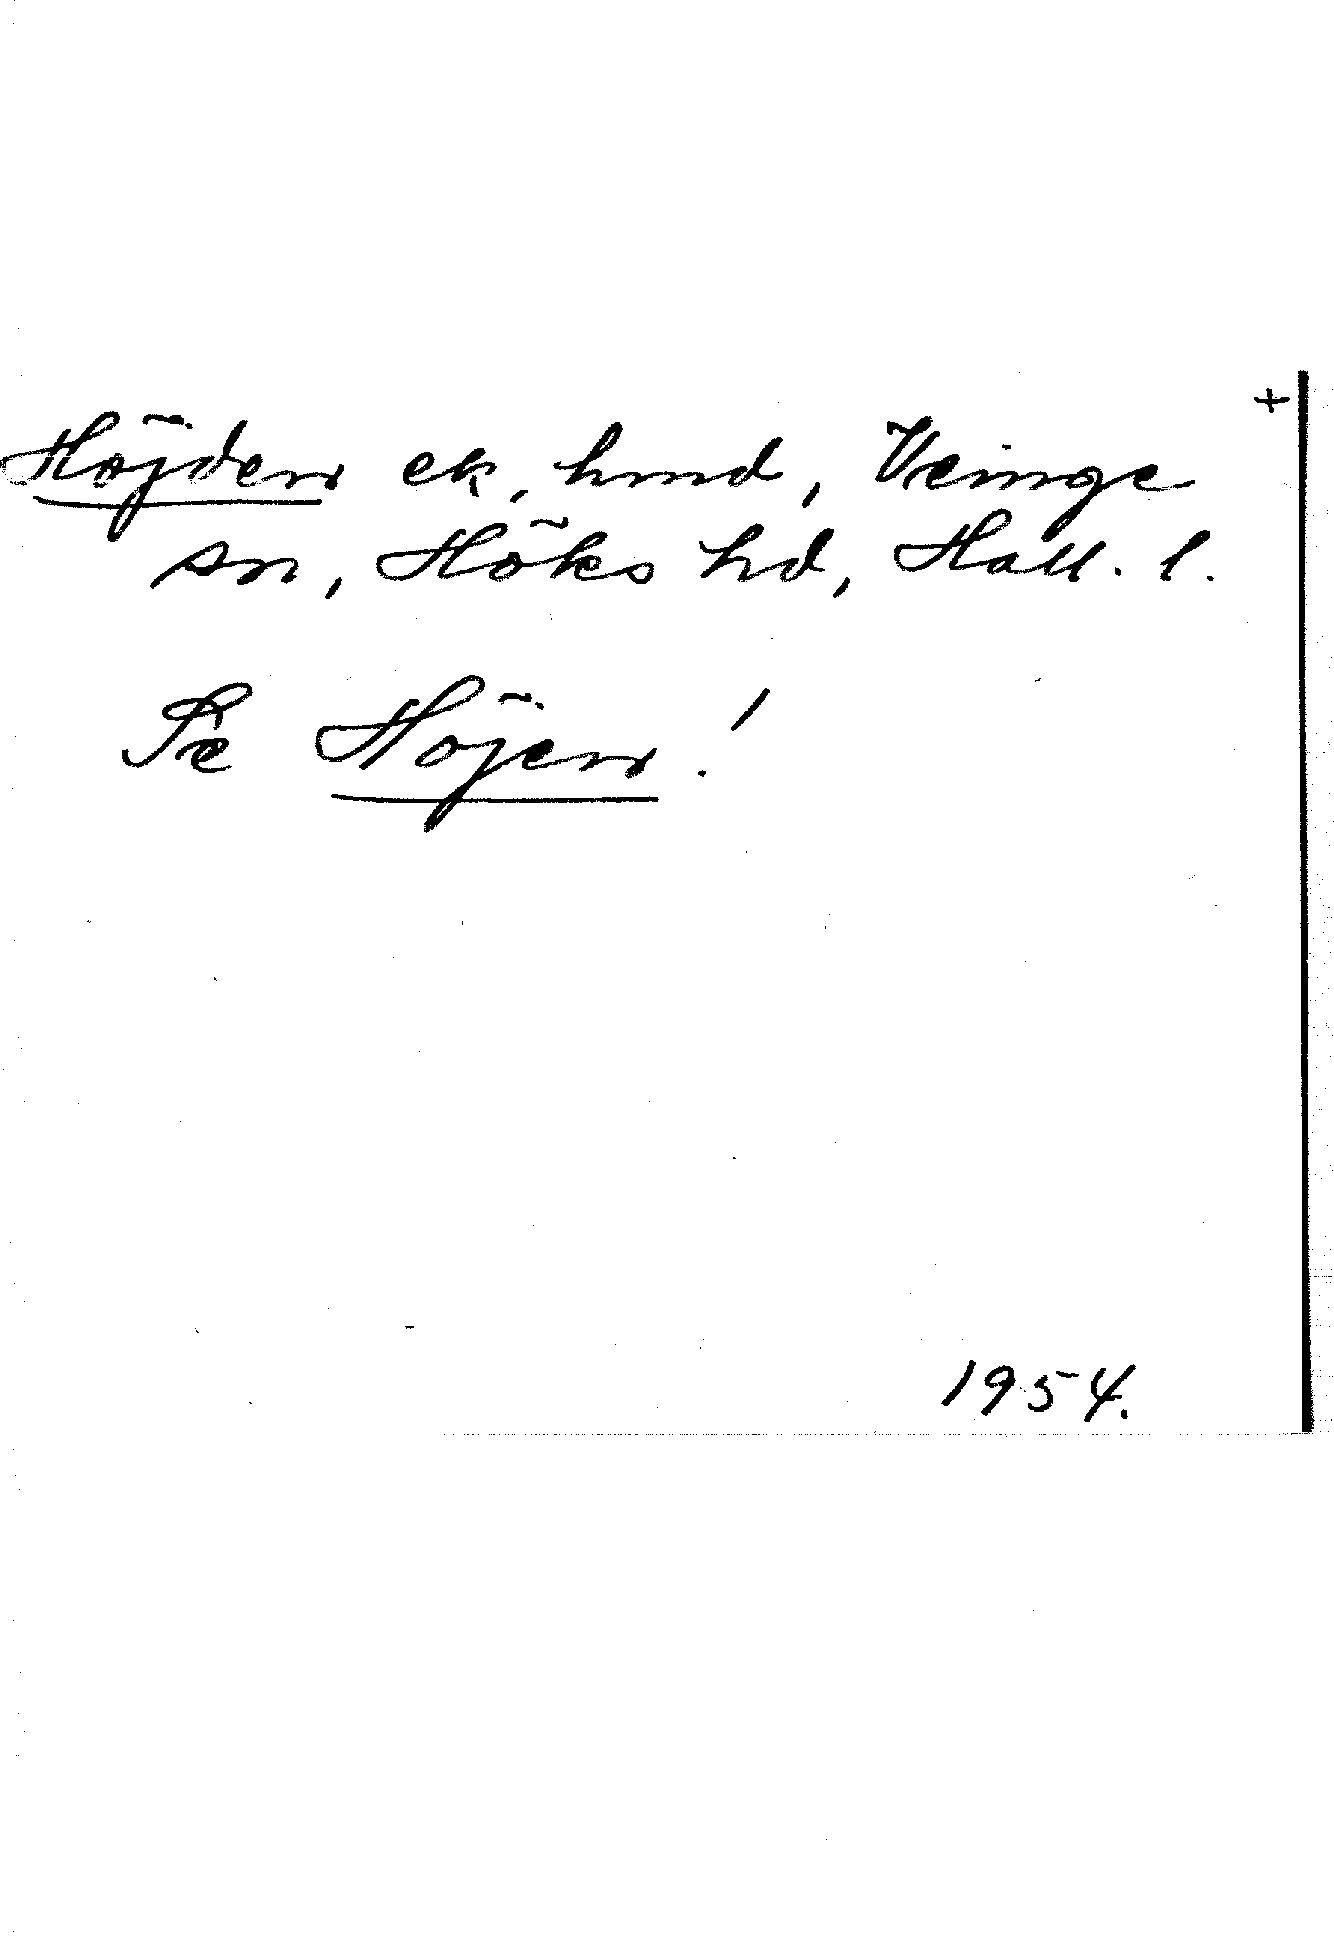 +
Höjden ek, hmd, Veinge
sn, Höks hd, Hall. l.
Se Höjen!
1954.